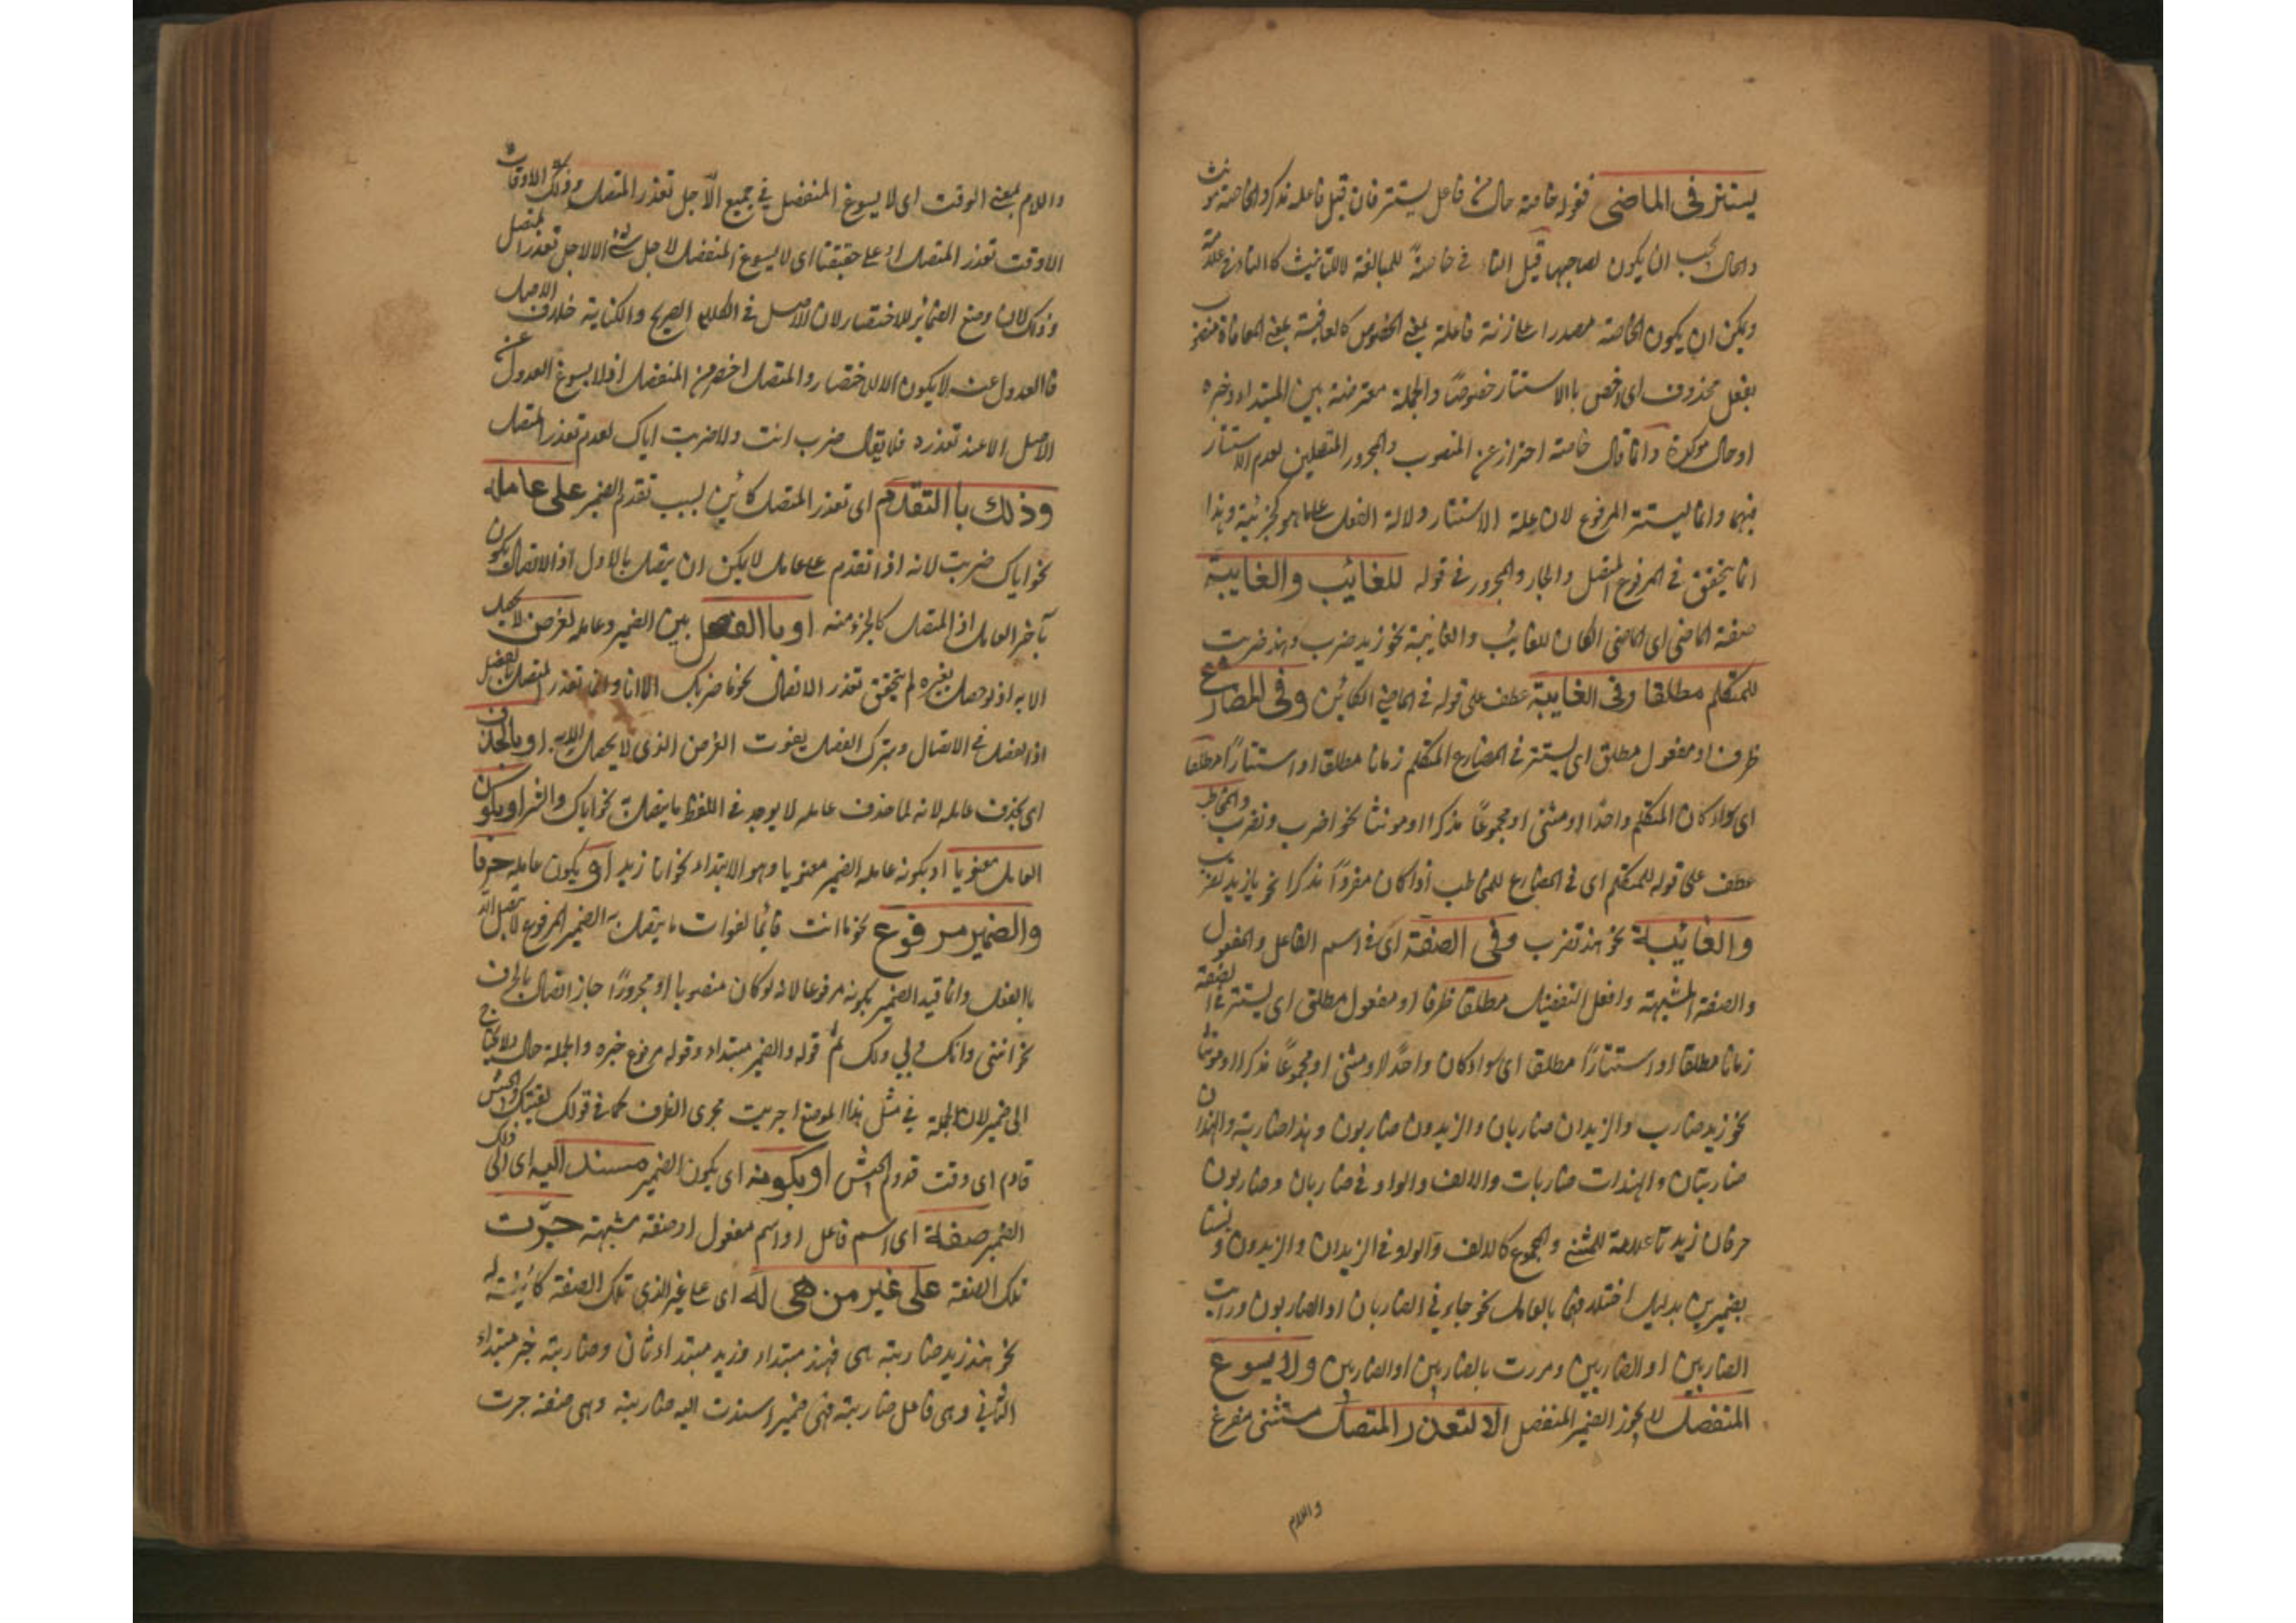 يستتر فى الماضى فقوله خاصة حال من فاعل يستتر فان قيل فاعله مذكر والخاصة مونث
والحال يجب ان يكون لصاحبها قيل التاء فى خاصة للمبالغة لا للتانيث كالتاء فى علامة
ويمكن ان يكون الخاصة مصدرا على زنة فاعلة بمعنى الخصوص كالعافية بمعنى المعافاة منصوب
بفعل محذوف اى اخص باالاستتار خصوصًا والجملة معترضة بين المبتداء وخبره
او حال موكدة وانما قال خاصة احتراز عن المنصوب والمجرور المتصلين لعدم الاستتار
فيهما وانما يستتر المرفوع لان علة الاستتار دلالة الفعل على ما هو كجزئية وهذا
انما يتحقق فى المرفوع المتصل والجار والمجرور فى قوله للغائب والغايبة
صفة الماضى اى الماضى الكان للغائب والغايبة نحو زيد ضرب وهند ضربت
للمتكلم مطلقا وفى الغايبة عطف على قوله فى الماضى الكائن وفى المضارع
ظرف او مفعول مطلق اى يستتر فى المضارع المتكلم زمانا مطلقا او استتارًا مطلقا
اى سواء كان المتكلم واحدًا او مثنى او مجموعًا مذكرا او مونثا نحو اضرب ونضرب والمخاطب
عطف على قوله للمتكلم اى فى المضارع للمخاطب اذا كان مفردًا مذكرا نحو يا زيد تضرب
والغائيبة نحو هند تضرب وفى الصفة اى فى اسم الفاعل والمفعول
والصفة المشبهة وافعل التفضيل مطلقا ظرف او مفعول مطلق اى يستتر فى الصفة
زمانا مطلقا او استتارًا مطلقا اى سواء كان واحدًا او مثنى او مجموعًا مذكرا او مونثا
نحو زيد ضارب والزيدان ضاربان والزيدون ضاربون وهند ضاربة والهندان
ضاربتان والهندات ضاربات والالف والواو فى ضاربان وضاربون
حرفان زيدتا علامة للمثنى والمجموع كالالف والواو فى الزيدان والزيدون وليستا
بضميرين بدليل اختلافهما بالعامل نحو جاءنى الضاربان او الضاربون ورايت
الضاربين او الضاربين ومررت بالضاربين او الضاربين ولا يسوغ
المنفصل لا يجوز الضمير المنفصل الا لتعذر المتصل مستثنى مفرغ
واللام
واللام بمعنى الوقت اى لا يسوغ المنفصل فى جميع الاجل تعذر المتصل وذلك الاوقات
الا وقت تعذر المتصل او على حقيقتها اى لا يسوغ المنفصل لاجل شئ الا لاجل تعذر المتصل
وذلك لان وضع الضمائر للاختصار لان الاصل فى الكلام الصريح والكناية خلاف الاصل
فاالعدول عنه لا يكون الا للاختصار والمتصل اخصر من المنفصل فلا يسوغ العدول عن
الاصل الا عند تعذره فلا يقال ضرب انت ولا ضربت اياك لعدم تعذر المتصل
وذلك باالتقدم اى تعذر المتصل كائن بسبب تقدم الضمير على عامله
نحو اياك ضربت لانه اذا تقدم على عامله لا يمكن ان يتصل بالاول اذ الاتصال يكون
بآخر العامل اذ المتصل كالجزء منه او باالفصل بين الضمير وعامله لغرض لا يحصل
الا به اذ لو حصل بغيره لم يتحقق تعذر الاتصال نحو ما ضربك الا انا وانما تعذر المتصل بالفصل
اذ الفصل فى الاتصال وبترك الفصل يفوت الغرض الذى لا يحصل الا به او بالحذف
اى بحذف عامله لانه لما حذف عامله لا يوجد فى اللفظ ما يتصل به نحو اياك والشر او بكون
العامل معنويا او بكونه عامله الضمير معنويا وهو الابتداء نحو انا زيد او يكون عامله حرفا
والضمير مرفوع نحو ما انت قائما لفوات ما يتصل به الضمير المرفوع لا يتصل الا
باالفعل وانما قيد الضمير بكونه مرفوعا لانه لو كان منصوبا او مجرورًا جاز اتصاله بالحرف
نحو اننى وانك ولى ولك ثم قوله والضمير مبتداء وقوله مرفوع خبره والجملة حالية ولا يحتاج
الى ضمير لان الجملة فى مثل هذا الموضع اجريت مجرى الظرف كما فى قولك لقيتك والجيش
قادم اى وقت قدوم الجيش او بكونه اى يكون الضمير مسندا اليه اى الى ذلك
الضمير صفة اى اسم فاعل او اسم مفعول او صفة مشبهة جرت
تلك الصفة على غير من هى له اى على غير الذى تلك الصفة كائنة له
نحو هند زيد ضاربته هى فهند مبتداء وزيد مبتداء ثان وضاربته خبر مبتداء
الثانى وهى فاعل ضاربته فهى ضمير اسندت اليه ضاربته وهى صفة جرت